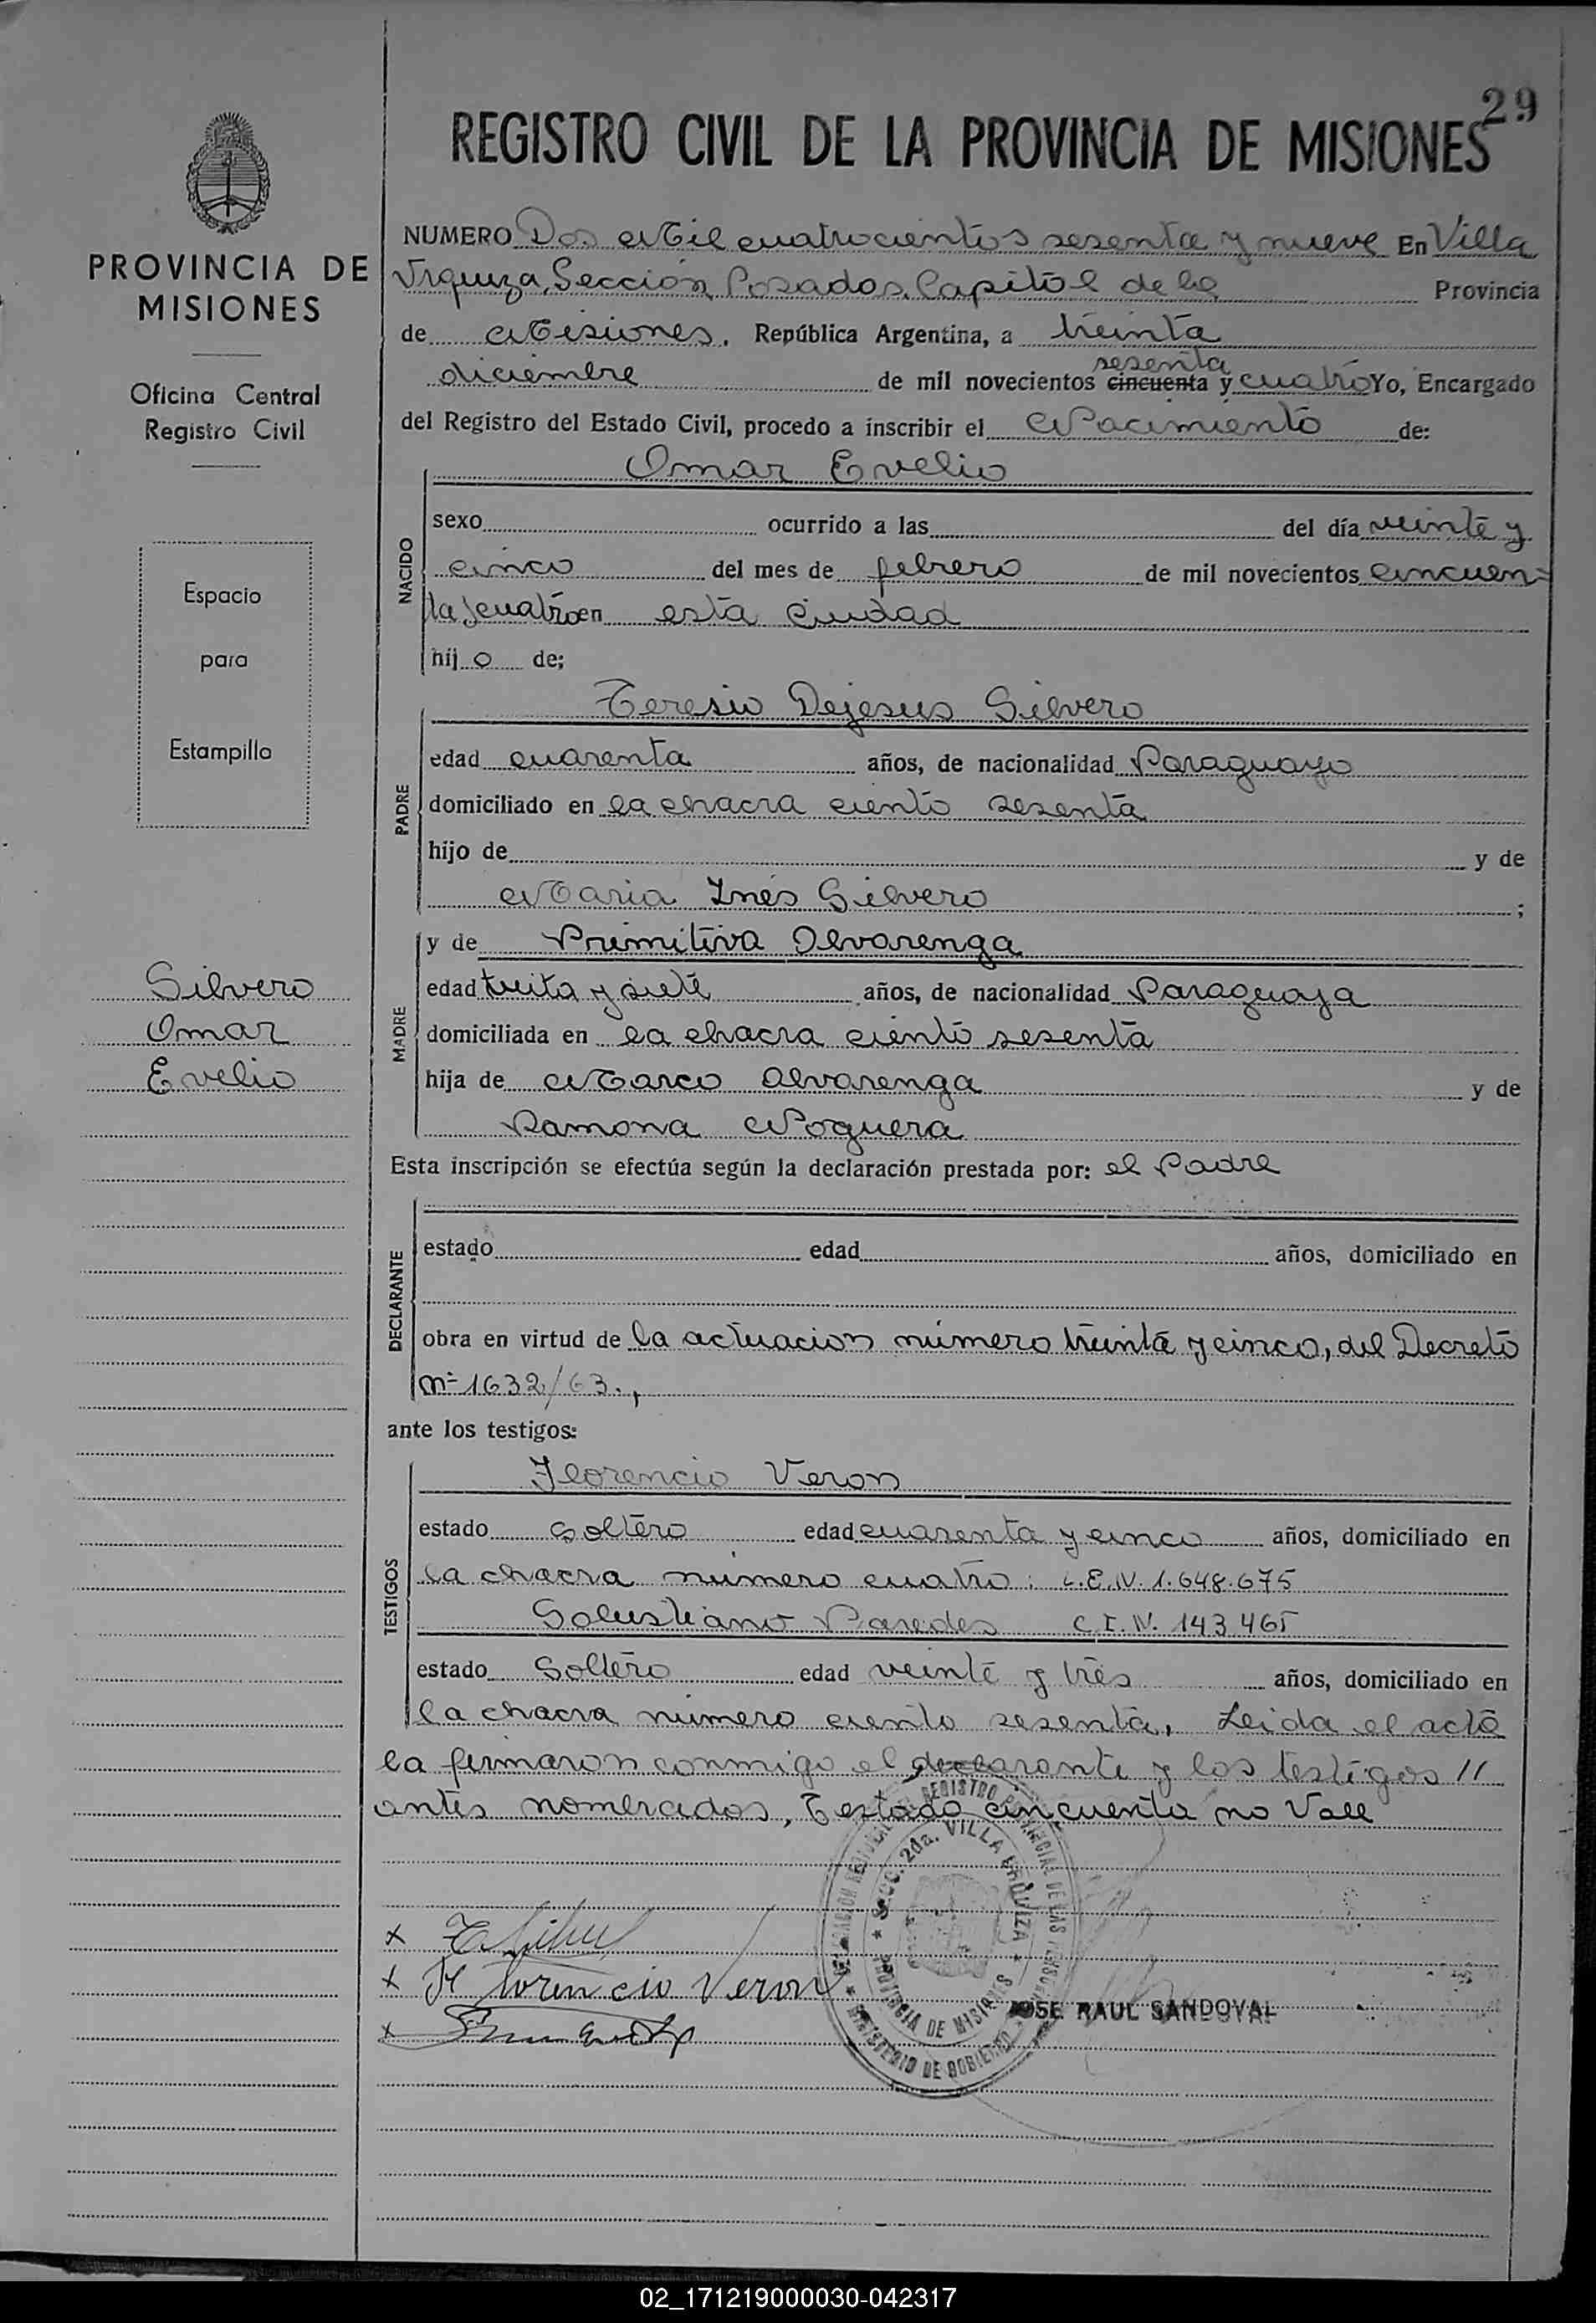 29
REGISTRO CIVIL DE LA PROVINCIA DE MISIONES
PROVINCIA DE
MISIONES
Oficina Central
Registro Civil
Espacio
para
Estampilla
Silvero
Omar
Evelio
NUMERO Dos Mil cuatrocientos sesenta y nueve En Villa
Urquiza, Sección Posadas, Capital de la Provincia
de Misiones, República Argentina, a treinta
sesenta
diciembre de mil novecientos cincuenta y cuatro Yo, Encargado
del Registro del Estado Civil, procedo a inscribir el Nacimiento de:
Omar Evelio
NACIDO
sexo ocurrido a las del día veinte y
cinco del mes de febrero de mil novecientos cincuen-
ta y cuatro en esta Ciudad
hij o de;
Teresio Dejesus Silvero
PADRE
edad cuarenta años, de nacionalidad Paraguayo
domiciliado en la chacra ciento sesenta
hijo de y de
Maria Inés Silvero ;
y de Primitiva Alvarenga
MADRE
edad treita y siete años, de nacionalidad Paraguaya
domiciliada en la chacra ciento sesenta
hija de Marco Alvarenga y de
Ramona Noguera
Esta inscripción se efectúa según la declaración prestada por: el Padre
DECLARANTE
estado edad años, domiciliado en
obra en virtud de la actuacion número treinta y cinco, del Decreto
Nº 1632/63.,
ante los testigos:
Florencio Veron
TESTIGOS
estado soltero edad cuarenta y cinco años, domiciliado en
la chacra número cuatro: L.E.N. 1.648.675
Solustiano Paredes C.I.N. 143.465
estado Soltero edad veinte y tres años, domiciliado en
la chacra número ciento sesenta, Leida el acta
la firmaron conmigo el declarante y los testigos //
antes nombrados, Testado cincuenta no Vale
SECC. 2da. VILLA URQUIZA
PROVINCIA DE MISIONES
MINISTERIO DE GOBIERNO
x
x Florencio Veron
x
JOSE RAUL SANDOVAL
02_171219000030-042317